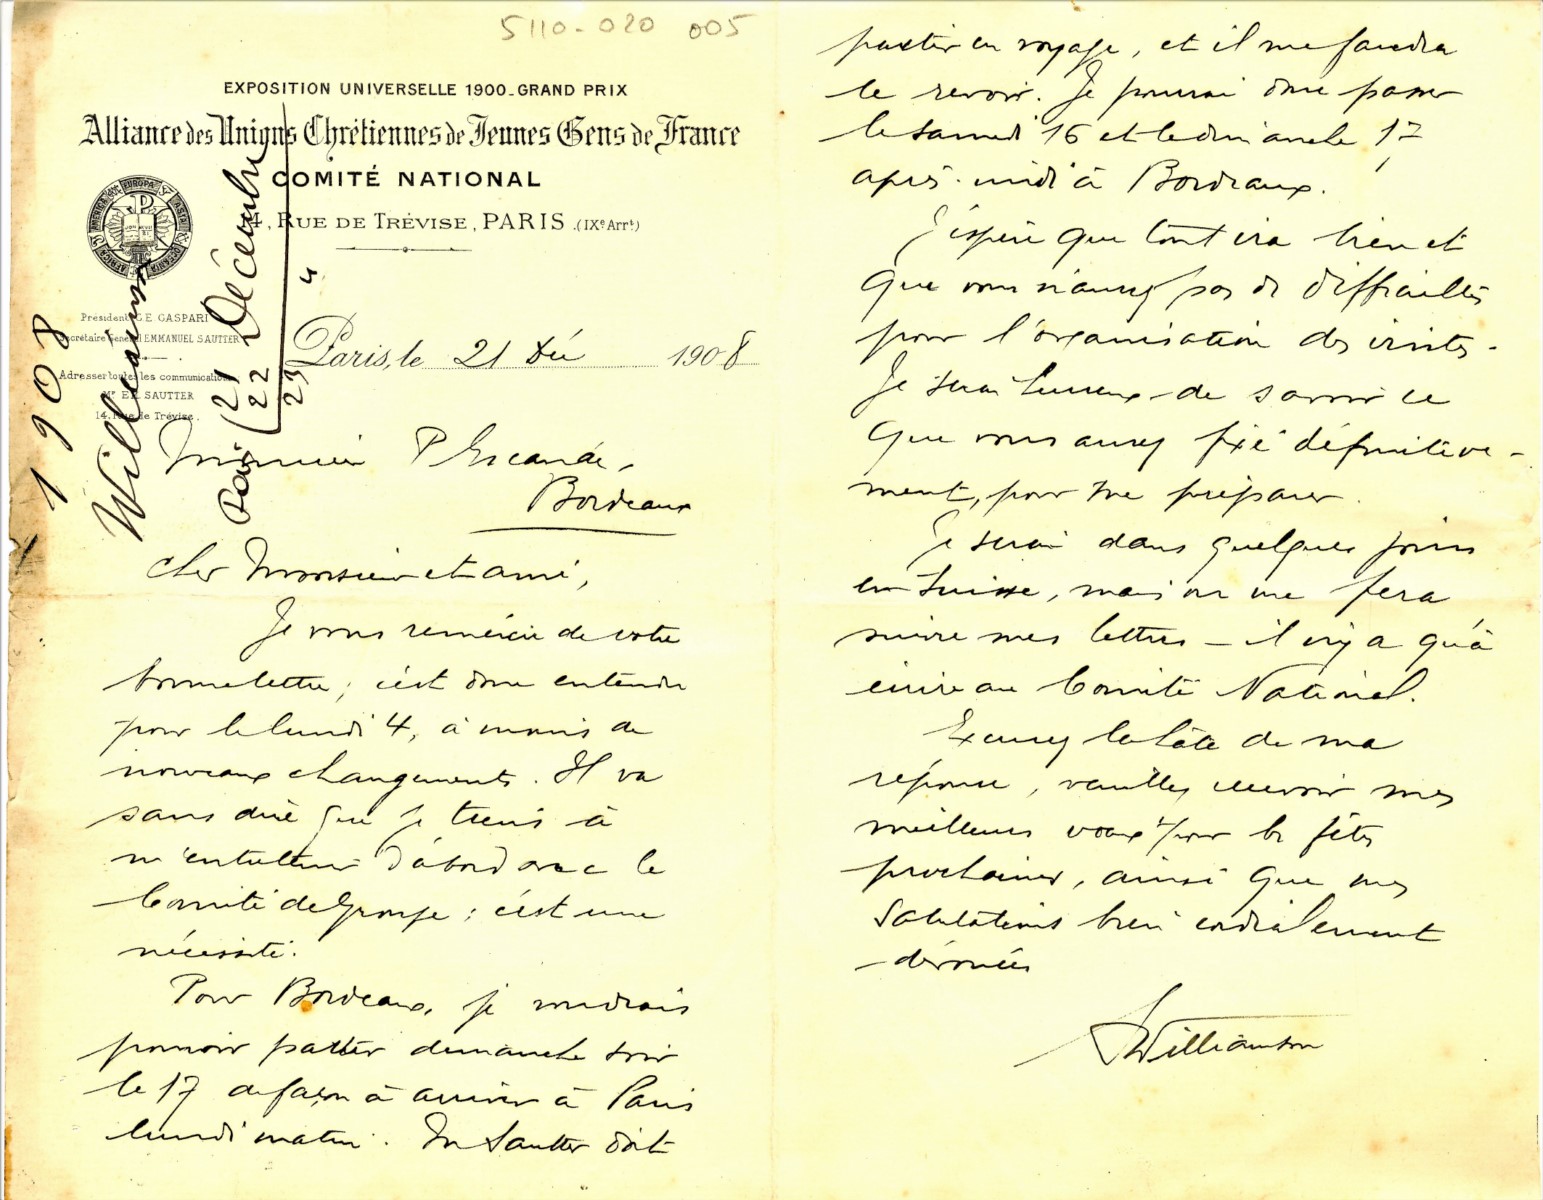 5110-020 005
EXPOSITION UNIVERSELLE 1900-GRAND PRIX
Alliance des Unions Chrétiennes de Jeunes Gens de France
COMITÉ NATIONAL
14, RUE DE TRÉVISE, PARIS (IXe Arrt)
EUROPA ASIA OCEANIA AFRICA AMERICA
Président: G.E. GASPARI
Secrétaire Général EMMANUEL SAUTTER
Adresser toutes les communications
Mr EM. SAUTTER
14, Rue de Trévise.
1908
Williamson
Paris
21 Décembre
22
23
4
Paris, le 21 Déc 1908
Monsieur P Escande,
Bordeaux
Cher Monsieur et ami,
Je vous remercie de votre
bonne lettre; c'est donc entendu
pour le lundi 4, à moins de
nouveaux changements. Il va
sans dire que je tiens à
m'entretenir d'abord avec le
Comité de Groupe; c'est une
nécessité.
Pour Bordeaux, je voudrais
pouvoir partir dimanche soir
le 17 de façon à arriver à Paris
lundi matin. Mr Sautter doit
partir en voyage, et il me faudra
le revoir. Je pourrai donc passer
le samedi 16 et le dimanche 17
après-midi à Bordeaux.
J'espère que tout ira bien et
que vous n'aurez pas de difficultés
pour l'organisation des visites.
Je serai heureux de savoir ce
que vous aurez fixé définitive-
ment, pour me préparer.
Je serai dans quelques jours
en Suisse, mais on me fera
suivre mes lettres - il n'y a qu'à
écrire au Comité National.
Excusez la hâte de ma
réponse, veuillez recevoir mes
meilleurs vœux pour les fêtes
prochaines, ainsi que mes
salutations bien cordialement
dévouées
Williamson